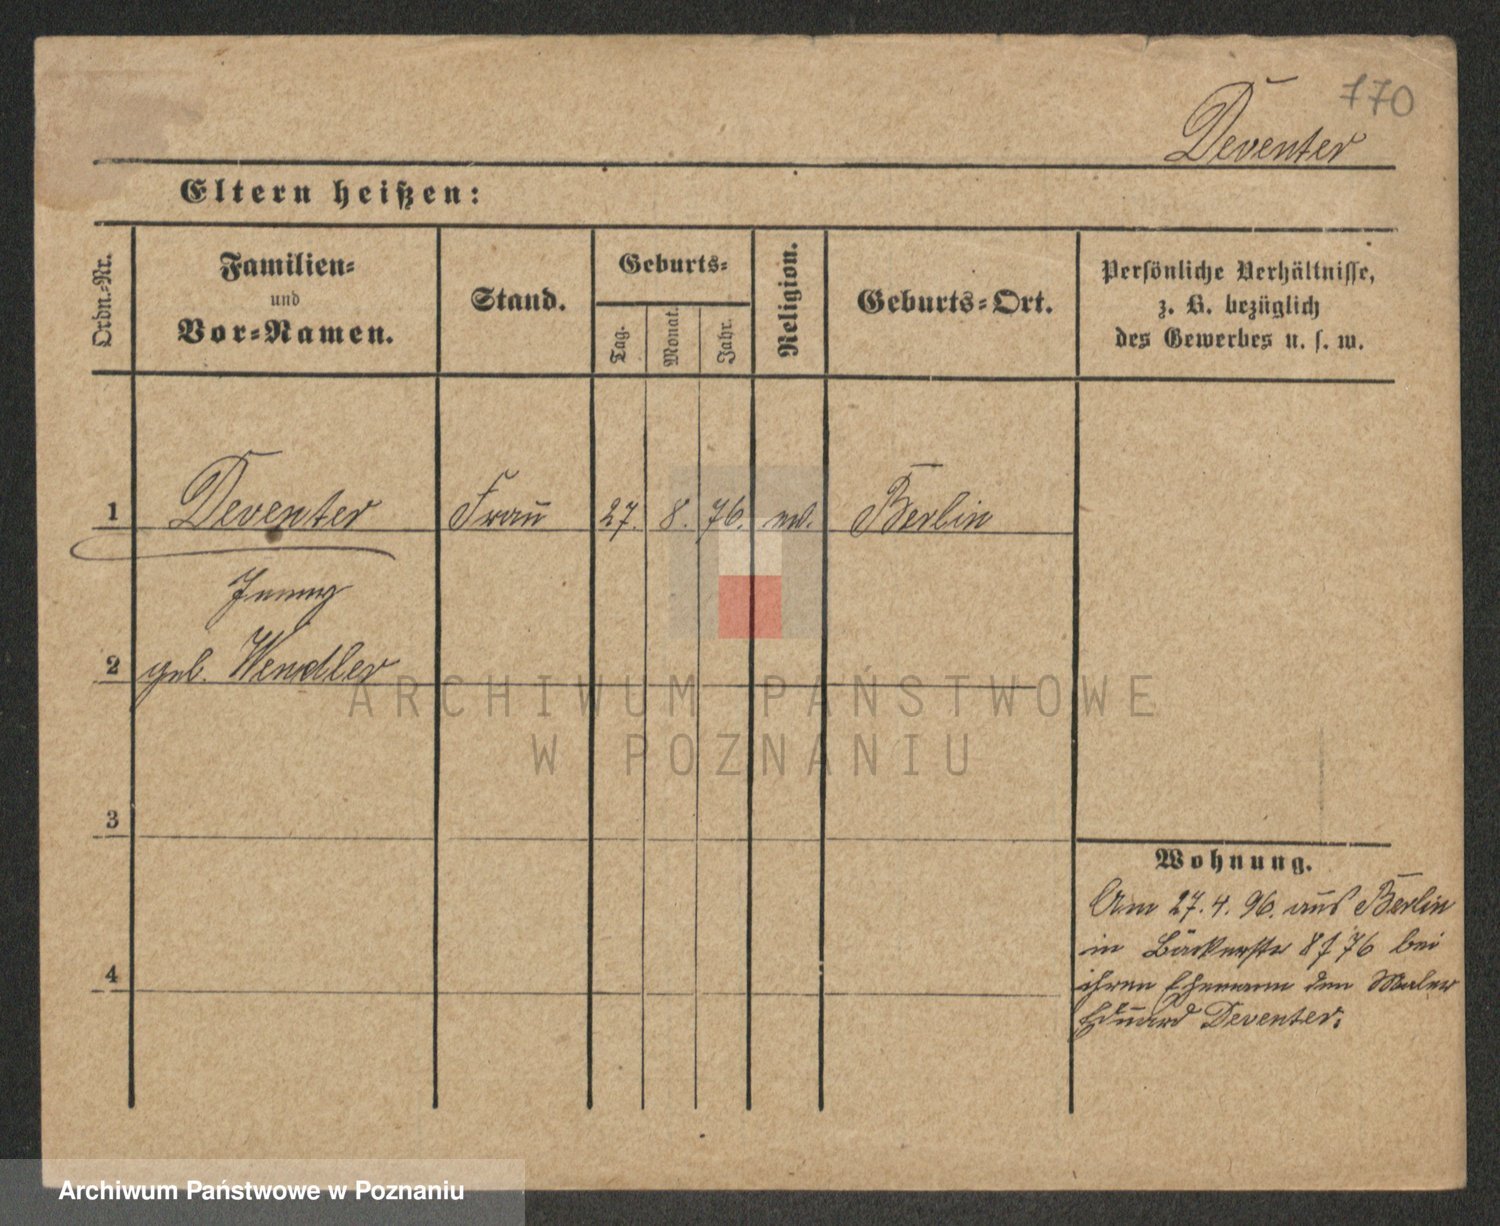 170
Deventer
Eltern heißen:
Ordn.-Nr.
Familien-
und
Vor-Namen.
Stand.
Geburts-
Tag.
Monat.
Jahr.
Religion.
Geburts-Ort.
Persönliche Verhältnisse,
z. B. bezüglich
des Gewerbes u. s. w.
1 Deventer Frau 27. 8. 76. ev. Berlin
Jenny
2 geb. Wendler
ARCHIWUM PAŃSTWOWE
W POZNANIU
3
Wohnung.
Am 27. 4. 96. aus Berlin
in Bäckerstr 8 f 76 bei
4
ihren Ehemann den Maler
Eduard Deventer.
Archiwum Państwowe w Poznaniu